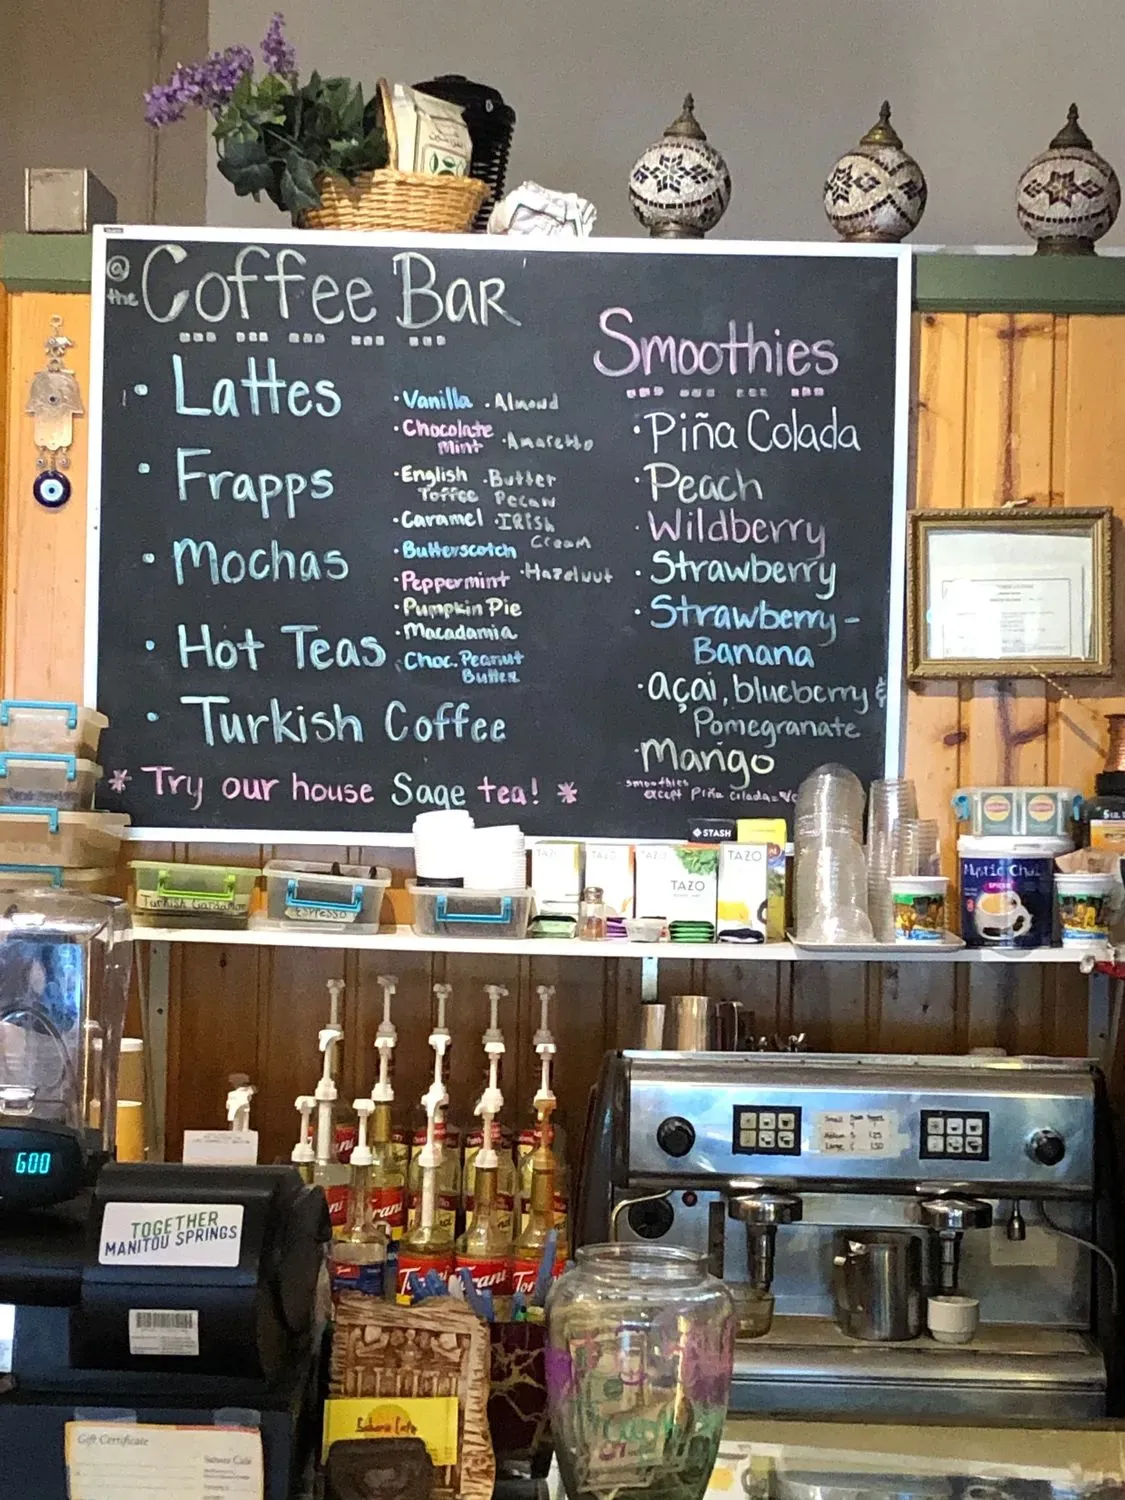 @ the Coffee Bar
· Lattes
· Frapps
· Mochas
· Hot Teas
· Turkish Coffee
* Try our house Sage tea! *
· Vanilla
· Chocolate
Mint
· English
Toffee
· Caramel
· Butterscotch
· Peppermint
· Pumpkin Pie
· Macadamia
· Choc. Peanut
Butter
· Almond
· Amaretto
· Butter
Pecan
· IRISH
Cream
· Hazelnut
Smoothies
· Piña Colada
· Peach
· Wildberry
· Strawberry
· Strawberry -
Banana
· açai, blueberry &
Pomegranate
· Mango
smoothies
except Piña Colada
Turkish
Espresso
STASH
TAZO
TAZO
TAZO
TAZO
TAZO
Mystic Chai
SPICED
600
TOGETHER
MANITOU SPRINGS
Torani
Torani
Gift Certificate
Sahara Cafe
Sahara Cafe